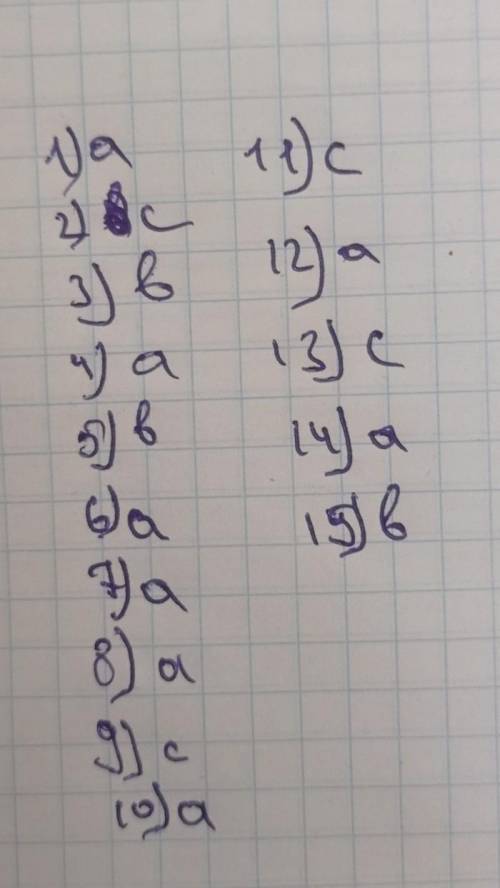 1) a
2) c
3) b
4) a
5) b
6) a
7) a
8) a
9) c
10) a
11) c
12) a
13) c
14) a
15) b